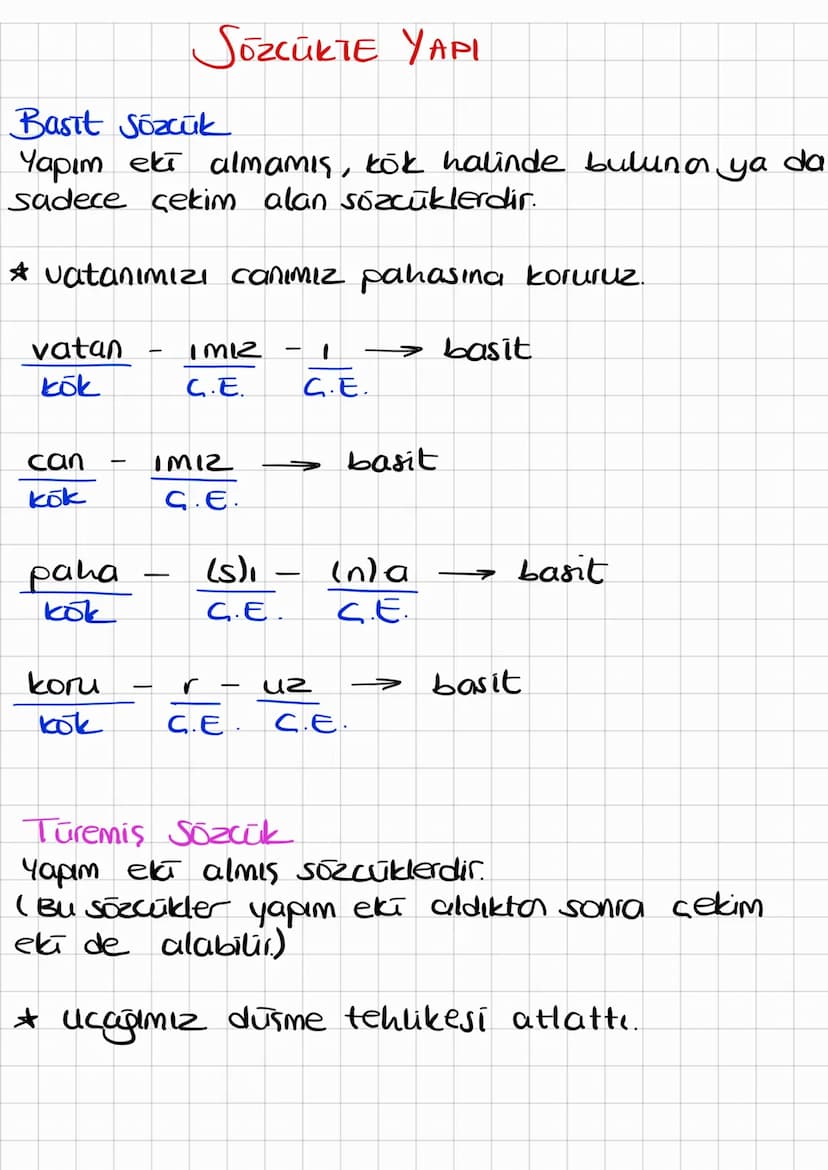 SÖZCÜKTE YAPI
Basit Sözcük
Yapım eki almamış, kök halinde bulunan ya da
sadece çekim alan sözcüklerdir.
* Vatanımızı canımız pahasına koruruz.
vatan - ımız - ı → basit
kök Ç.E. Ç.E.
can - ımız → basit
kök Ç.E.
paha - (s)ı - (n)a → basit
kök Ç.E. Ç.E.
koru - r - uz → basit
kök Ç.E. Ç.E.
Türemiş Sözcük
Yapım eki almış sözcüklerdir.
(Bu sözcükler yapım eki aldıktan sonra çekim
eki de alabilir.)
* Uçağımız düşme tehlikesi atlattı.